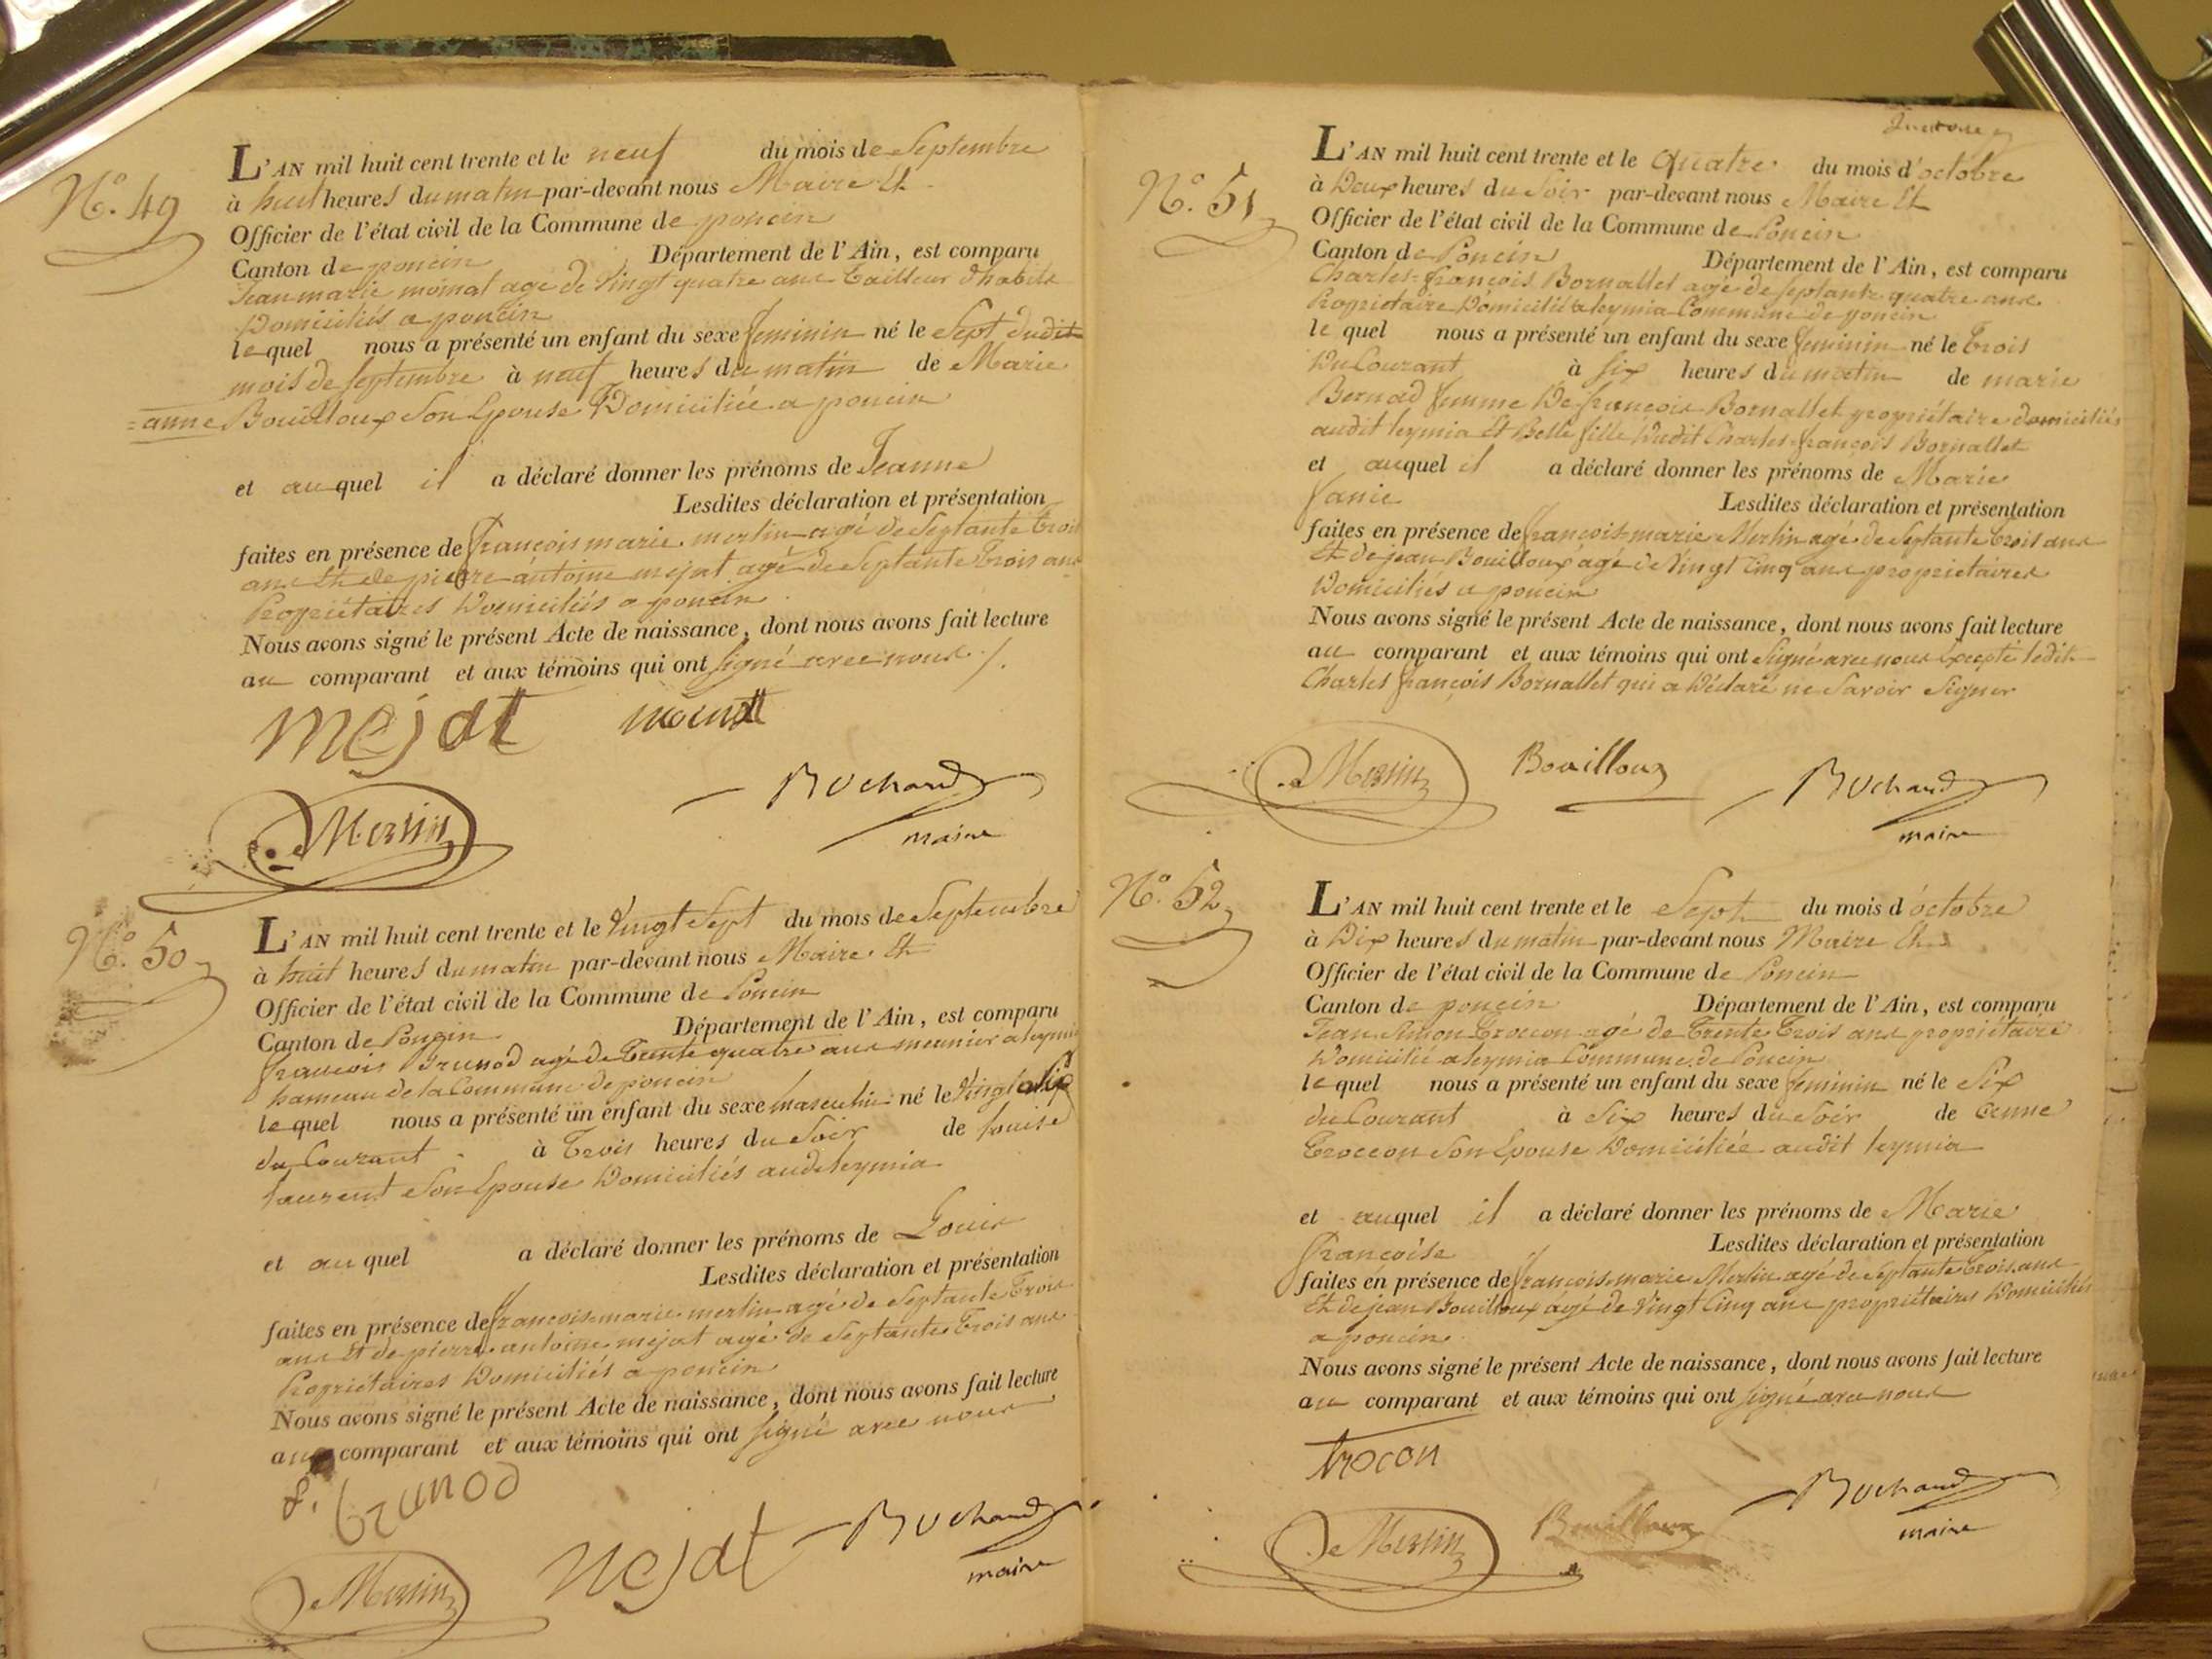 N.° 49
L'AN mil huit cent trente et le neuf du mois de Septembre
à huit heures du matin par-devant nous Maire Et
Officier de l'état civil de la Commune de poncin
Canton de poncin Département de l'Ain, est comparu
Jean marie momat agé de Vingt quatre ans tailleur d'habits
Domiciliés a poncin
le quel nous a présenté un enfant du sexe feminin né le Sept dudit
mois de septembre à neuf heures du matin de Marie
=anne Bouilloux Son Epouse Domiciliée a poncin
et au quel il a déclaré donner les prénoms de Jeanne
Lesdites déclaration et présentation
faites en présence de françois marie merlin agé de Septante trois
ans Et de pierre antoine mejat agé de Septante trois ans
Propriétaires Domiciliés a poncin
Nous avons signé le présent Acte de naissance, dont nous avons fait lecture
au comparant et aux témoins qui ont signé avec nous /.
mejat
Merlin
Buchard
maire
N.° 50
L'AN mil huit cent trente et le Vingt Sept du mois de Septembre
à huit heures du matin par-devant nous Maire Et
Officier de l'état civil de la Commune de Poncin
Canton de Poncin Département de l'Ain, est comparu
françois Brunod agé de Trente quatre ans meunier a leymia
hameau de la Commune de poncin
le quel nous a présenté un enfant du sexe masculin né le Vingt
du Courant à Trois heures du Soir de Louise
Laurent Son Epouse Domiciliés audit leymia
et au quel a déclaré donner les prénoms de Louis
Lesdites déclaration et présentation
faites en présence de françois marie merlin agé de Septante Trois
ans Et de pierre antoine mejat agé de Septante Trois ans
Propriétaires Domiciliés a poncin
Nous avons signé le présent Acte de naissance, dont nous avons fait lecture
au comparant et aux témoins qui ont signé avec nous
f. brunod
Merlin
Mejat
Buchard
maire
N.° 51
L'AN mil huit cent trente et le quatre du mois d'octobre
à Deux heures du Soir par-devant nous Maire Et
Officier de l'état civil de la Commune de Poncin
Canton de Poncin Département de l'Ain, est comparu
Charles-françois Bornallet agé de septante quatre ans
Propriétaire Domicilié a leymia Commune de poncin
le quel nous a présenté un enfant du sexe feminin né le trois
Du Courant à six heures du matin de marie
Bernad femme De françois Bornallet propriétaire domiciliés
audit leymia Et Belle fille Dudit Charles-françois Bornallet
et auquel il a déclaré donner les prénoms de Marie
fanie Lesdites déclaration et présentation
faites en présence de françois-marie Merlin agé de Septante trois ans
Et de jean Bouilloux agé de Vingt Cinq ans propriétaires
Domiciliés a poncin
Nous avons signé le présent Acte de naissance, dont nous avons fait lecture
au comparant et aux témoins qui ont Signé avec nous Excepté ledit
Charles françois Bornallet qui a Déclaré ne Savoir Signer
Merlin
Bouilloux
Buchard
maire
N.° 52
L'AN mil huit cent trente et le Sept du mois d'octobre
à Dix heures du matin par-devant nous Maire Et
Officier de l'état civil de la Commune de Poncin
Canton de poncin Département de l'Ain, est comparu
Jean Simon Trocon agé de Trente Trois ans propriétaire
Domicilié a leymia Commune de Poncin
le quel nous a présenté un enfant du sexe feminin né le Six
du Courant à Six heures du Soir de anne
Troccon Son Epouse Domiciliée audit leymia
et auquel il a déclaré donner les prénoms de Marie
françoise Lesdites déclaration et présentation
faites en présence de françois-marie Merlin agé de Septante trois ans
Et de jean Bouilloux agé de Vingt Cinq ans propriétaires Domiciliés
a poncin
Nous avons signé le présent Acte de naissance, dont nous avons fait lecture
au comparant et aux témoins qui ont signé avec nous
trocon
Merlin
Bouilloux
Buchard
maire